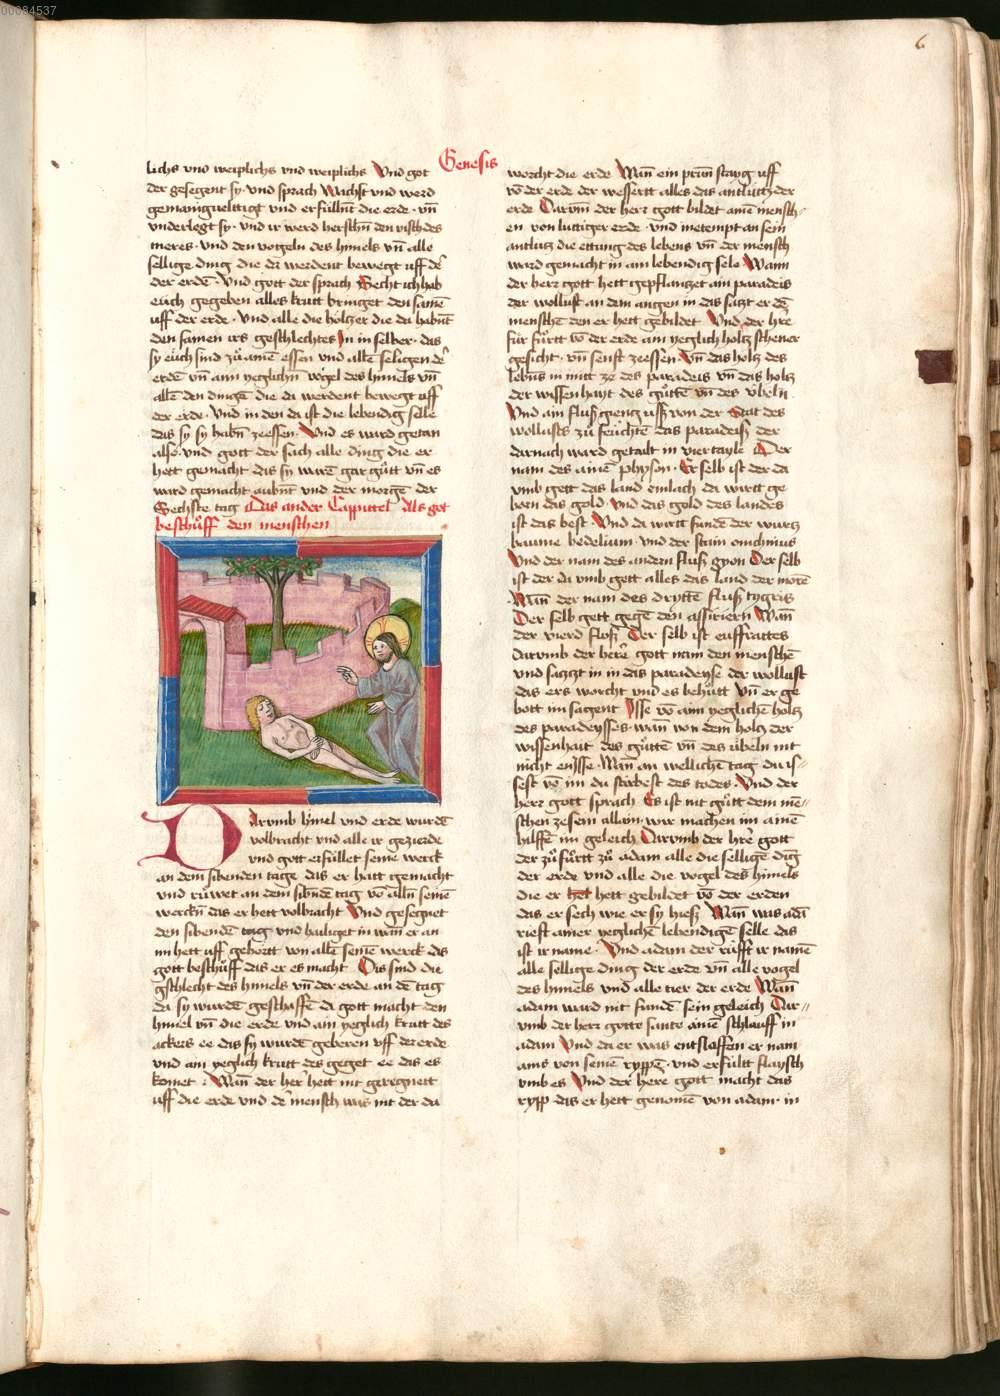 00084537
6
Genesis
lichs vnd weiplichs vnd weiplichs Vnd got
der gesegent sy · vnd sprach Wachst vnd werd
gemanigueltigt vnd erfüllnt die erde · vn̄
vnderlegt sy · vnd ir werd herschn̄ den vischē des
meres · vnd den vogeln des himels vn̄ alle
sellige ding die da werdent bewegt uff dē
der erdē · Vnd gott der sprach Secht ich hab
euch gegeben alles krutt bringet den samē
uff der erde · Vnd alle die höltzer die da habnt
den samen irs geschlechtes In in selber · das
sy eüch sind zü amē essen vnd allē seligen dē
erdē vn̄ aim yeglichn̄ vogel des himels vn̄
allē den dingē die da werdent bewegt uff
der erde · Vnd in den da ist die lebendig selle
das sy sy habn̄ zeessen · Vnd es ward getan
also · vnd gott der sach alle ding die er
hett gemacht das sy warē gar gütt vn̄ es
ward gemacht aubnt vnd der morgē der
Sechste tag Das ander Cappittel Als got
beschüff den menschen
Darvmb himel vnd erde wurdē
volbracht vnd alle ir gezierde
vnd gott erfüllet seine werck
an dem sibenden tage das er hatt gemacht
vnd rüwet an dem sibndē tag vō alln̄ seinē
werckn̄ das er hett volbracht Vnd gesegnet
den sibendē tag vnd hailiget in wan̄ er an
im hett uff gehörtt von allē seinē werck das
gott beschüff das er es macht Dis sind die
gschlecht des himels vn̄ der erde an dē tag
da sy wurdē geschaffē da gott macht den
himel vn̄ die erde vnd ain yeglich krutt des
ackers ee das sy wurdē geberen uff der erde
vnd ain yeglich krutt des geget ee das es
komet : Wan̄ der her hett nit geregnett
uff die erde vnd dē mensch was nit der da
worcht die erde Wan̄ ein prun̄ staig uff
vō der erde der wessertt alles das antlütz der
erde Darvm̄ der herr gott bildet amē mensch-
en von lattiger erde · vnd inetempt an sein
antlutz die ettung des lebens vn̄ der mensch
ward gemacht in ain lebendig sele Wann
der herr gott hett gepflanzet am paradeis
der wollust an dem angen in das satzt er dē
menschē den er hett gebildet Vnd der hre
für fürtt vō der erde am yeglich holtz schener
gesicht · vn̄ senft zeessen Vn̄ das holtz des
lebns in mitt ze des paradeis vn̄ das holtz
der wissenhayt des güttē vn̄ des übeln ·
Vnd ain fluß gieng uß von der Stat des
wollusts zü feüchtē das paradeiß der
darnach ward getailt in vier tayle Der
nam des ainē physon · Er selb ist der da
vmb gett das land emlach da wirtt ge
born das gold · Vnd das gold des landes
ist das best · Vnd da wirtt fundē der wurtz
baume bedelium · vnd der stain onichinus
Vnd der nam des andern fluß gyon Der selb
ist der da vmb gott alles das land der morē
Wan̄ der nam des dryttē fluß tygris
Der selb gett gegē den assiriern Wan̄
der vierd floß Der selb ist euffrattes
Darvmb der herē gott nam den menschē
vnd satzt in in das paradeyse der wollust
das ers worcht vnd es behütt Vn̄ er ge
bott im sagent Isse vō aim yeglichē holtz
des paradeysses · wan̄ von dem holtz der
wissenhait des güttē vn̄ des übeln nit
nicht enysse · Wan̄ an wellichē tag du is-
sest vō im du sterbest des todes · Vnd der
herr gott sprach Es ist nit gütt dem mē-
schen zesein allain · wir machen im ainē
hilffē im geleich Darvmb der hrē gott
der zü fürtt zü adam alle die sellige dig
der erde vnd alle die vogel des himels
die er het hett gebildet vō der erden
das er sech wie er sy hieß Wan̄ was adā
rieft ainer yeglichē lebendigē selle das
ist ir name · Vnd adam der rüfft ir namē
alle sellige ding der erde vn̄ alle vogel
des himels vnd alle tier der erde Wan̄
adam ward nit fundē sein geleich Dar-
vmb der herr gotte sante ainē schlauff in
adam Vnd da er was entslaffen er nam
ains von seinē ryppē · vnd erfültt flaysch
vmb es Vnd der here gott macht das
rypp das er hett genomē von adam · in